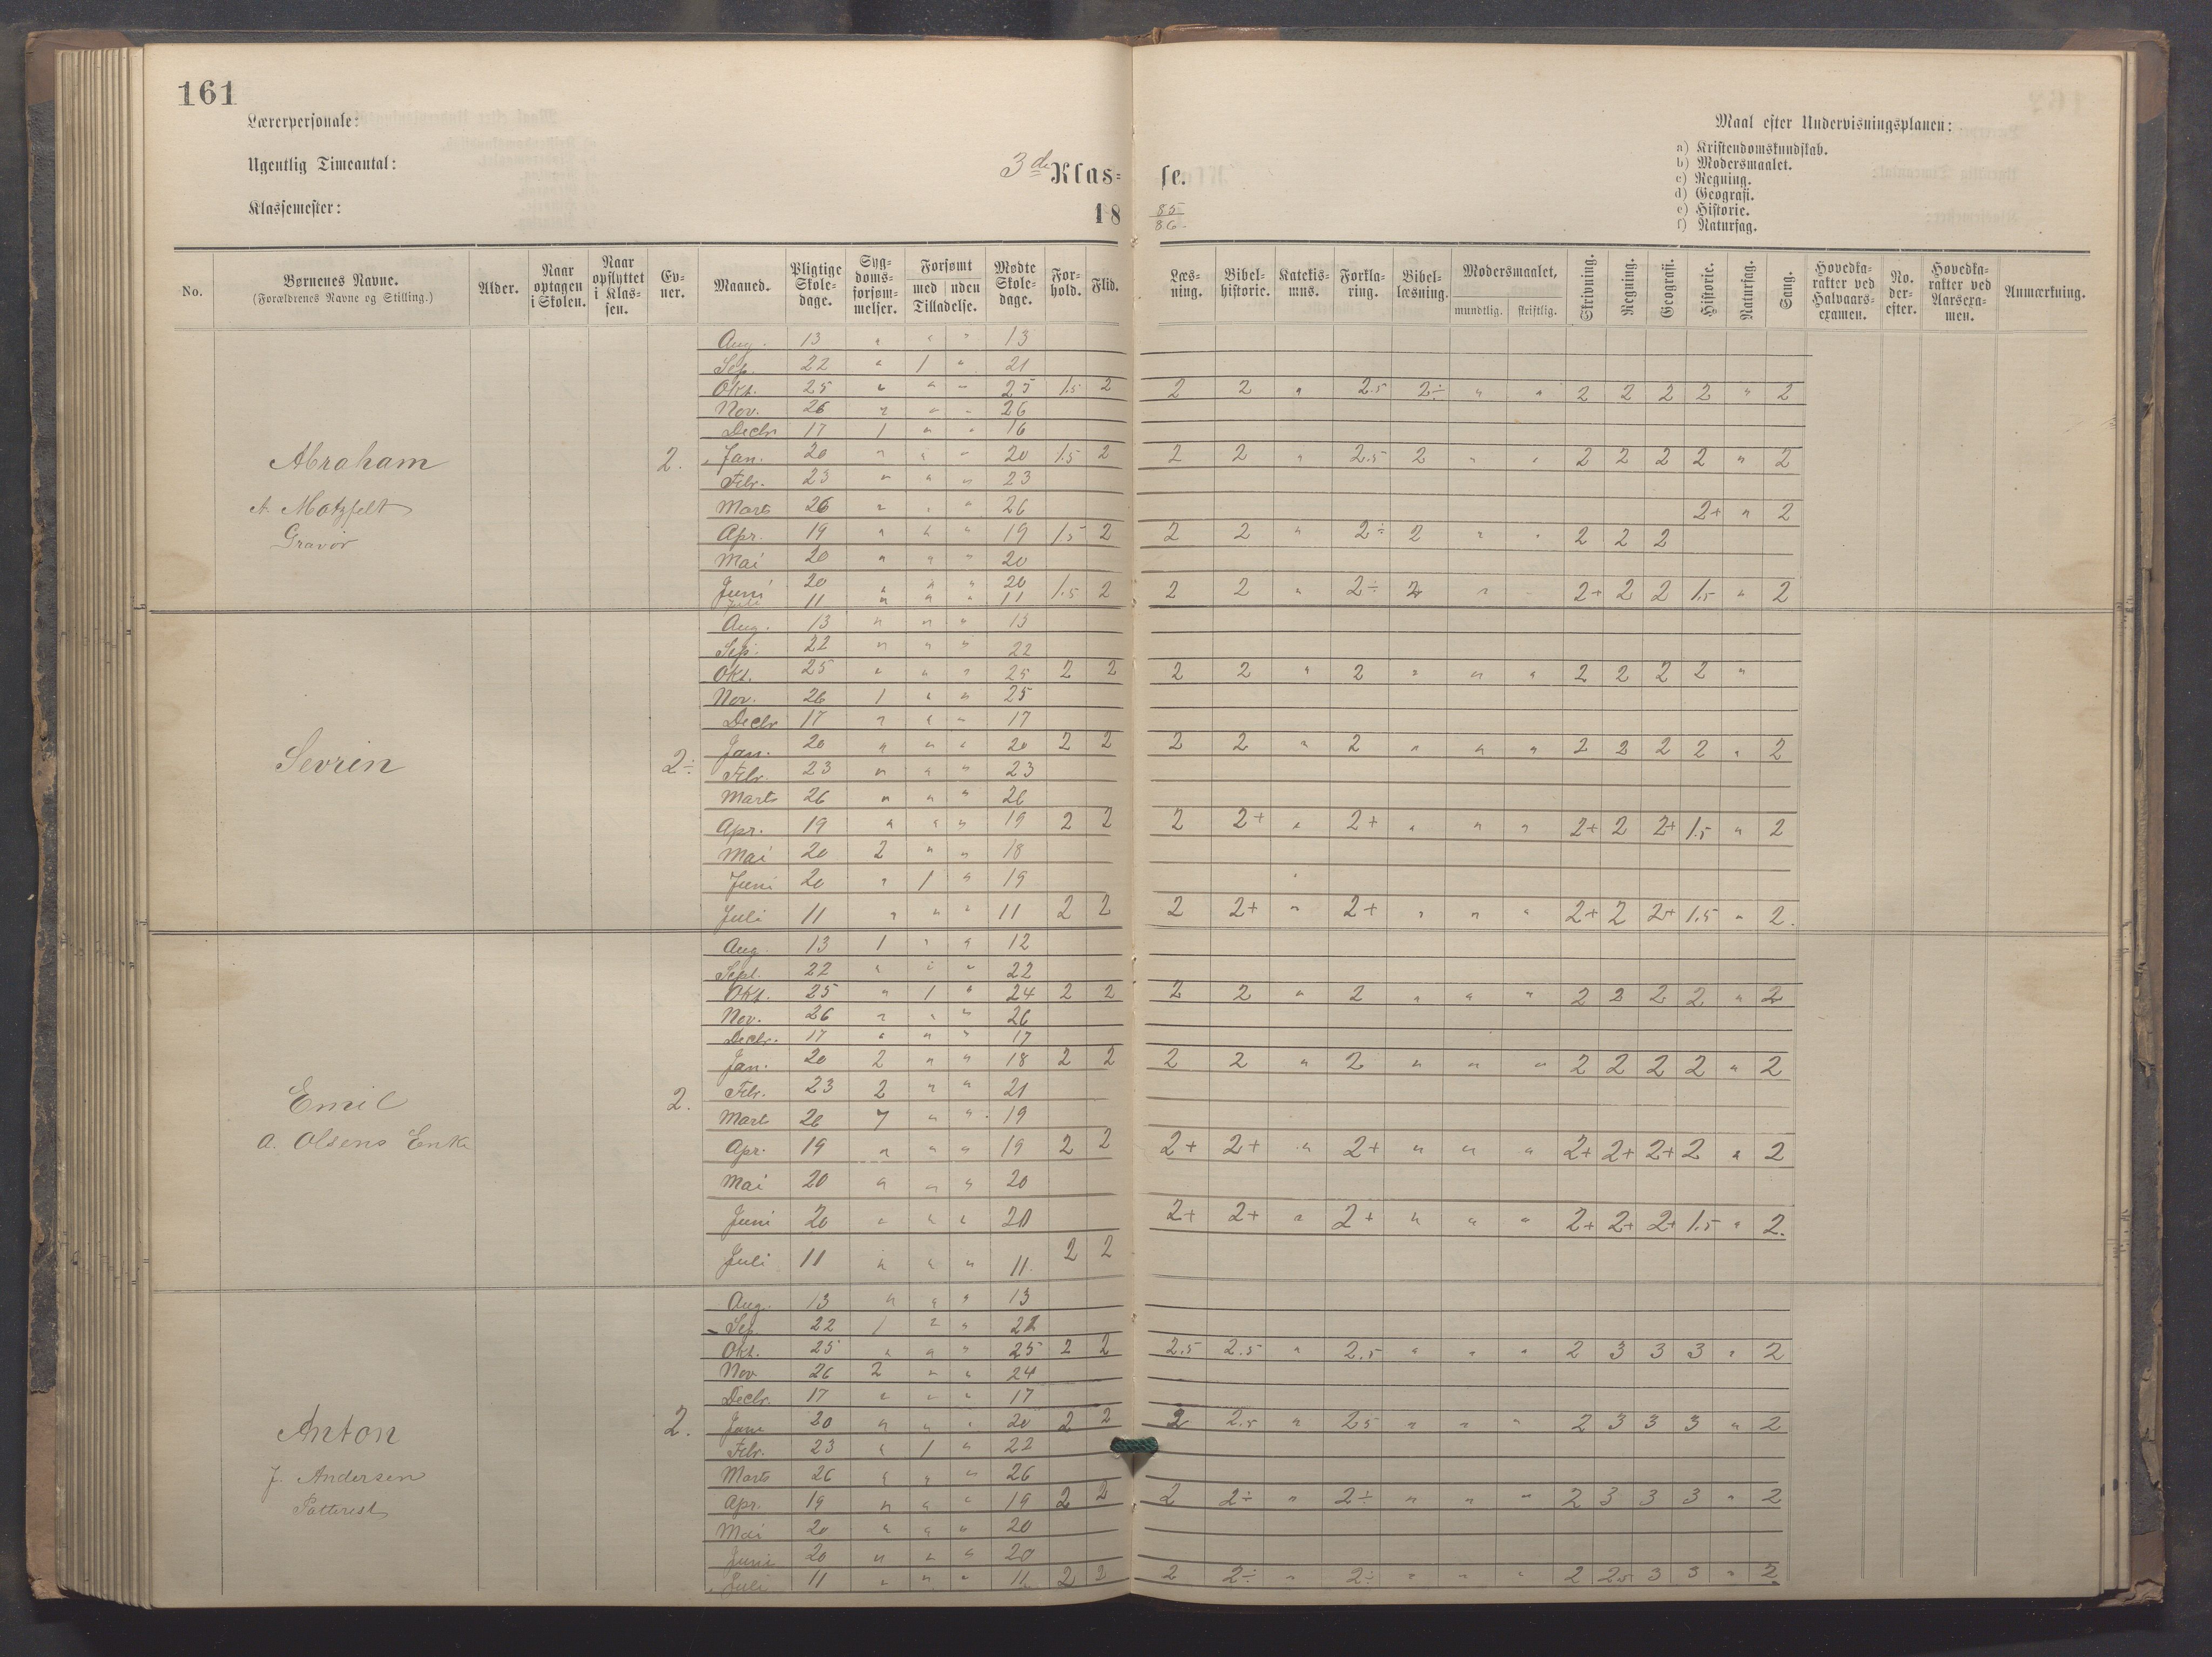 161
Lærerpersonale:
Ugentlig Timeantal:
Klassemester:
3de Klas= se.
18 85/86
Maal efter Undervisningsplanen:
a) Kristendomskundskab.
b) Modersmaalet.
c) Regning.
d) Geografi.
e) Historie.
f) Naturfag.
No. Børnenes Navne. (Forældrenes Navne og Stilling.) Alder. Naar optagen i Skolen. Naar opflyttet i Klas=sen. Ev=ner. Maaned. Pligtige Skole=dage. Syg=doms=forsøm=melser. Forsømt med uden Tilladelse. Mødte Skole=dage. For=hold. Flid. Læs=ning. Bibel=historie. Katekis=mus. Forkla=ring. Bibel=læsning. Modersmaalet, mundtlig. skriftlig. Skrivning. Regning. Geografi. Historie. Naturfag. Sang. Hovedka=rakter ved Halvaars=examen. No. der=efter. Hovedka=rakter ved Aarsexa=men. Anmærkning.
Abraham
A. Motzfelt
Gravør
2.
Aug. 13 " " " 13
Sep. 22 " 1 " 21
Okt. 25 " " " 25 1.5 2 2 2 " 2.5 2÷ " " 2 2 2 2 " 2
Nov. 26 " " " 26
Decbr 17 1 " " 16
Jan. 20 " " " 20 1.5 2 2 2 " 2.5 2 " " 2 2 2 2 " 2
Febr. 23 " " " 23
Marts 26 " " " 26 2+ " 2
Apr. 19 " " " 19 1.5 2 2 2 " 2÷ 2 " " 2 2 2
Mai 20 " " " 20
Juni 20 " " " 20 1.5 2 2 2 " 2÷ 2 " 2+ 2 2 1.5 " 2
Juli 11 " " " 11
Sevrin
2÷
Aug. 13 " " " 13
Sep. 22 " " " 22
Okt. 25 " " " 25 2 2 2 2 " 2 " " " 2 2 2 2 "
Nov. 26 1 " " 25
Decbr 17 " " " 17
Jan. 20 " " " 20 2 2 2 2 " 2 " " " 2 2 2 2 " 2
Febr. 23 " " " 23
Marts 26 " " " 26
Apr. 19 " " " 19 2 2 2 2+ " 2+ " " " 2+ 2 2+ 1.5 " 2
Mai 20 2 " " 18
Juni 20 " 1 " 19
Juli 11 " " " 11 2 2 2 2+ " 2+ " " " 2+ 2 2+ 1.5 " 2.
Emil
A. Olsens Enke
2.
Aug. 13 1 " " 12
Sept. 22 " " " 22
Okt. 25 " 1 " 24 2 2 2 2 " 2 " " " 2 2 2 2 " 2
Nov. 26 " " " 26
Decbr. 17 " " " 17
Jan. 20 2 " " 18 2 2 2 2 " 2 " " " 2 2 2 2 " 2
Febr. 23 2 " " 21
Marts 26 7 " " 19
Apr. 19 " " " 19 2 2 2+ 2+ " 2+ " " " 2+ 2+ 2+ 2 " 2
Mai 20 " " " 20
Juni 20 " " " 20 2+ 2+ " 2+ " " " 2+ 2+ 2+ 1.5 " 2.
Juli 11 " " " 11. 2 2
Anton
J. Andersen
2.
Aug. 13 " " " 13
Sep. 22 1 " " 21
Okt. 25 " " " 25 2 2 2.5 2.5 " 2.5 " " " 2 3 3 3 " 2
Nov 26 2 " " 24
Decbr. 17 " " " 17
Jan 20 " " " 20 2 2 2 2.5 " 2.5 " " " 2 3 3 3 " 2
Febr. 23 " 1 " 22
Marts 26 " " " 26
Apr. 19 " " " 19 2 2 2 2÷ " 2÷ " " " 2 3 3 3 " 2
Mai 20 " " " 20
Juni 20 " " " 20
Juli 11 " " " 11 2 2 2 2÷ " 2÷ " " " 2 2.5 3 3 " 2.